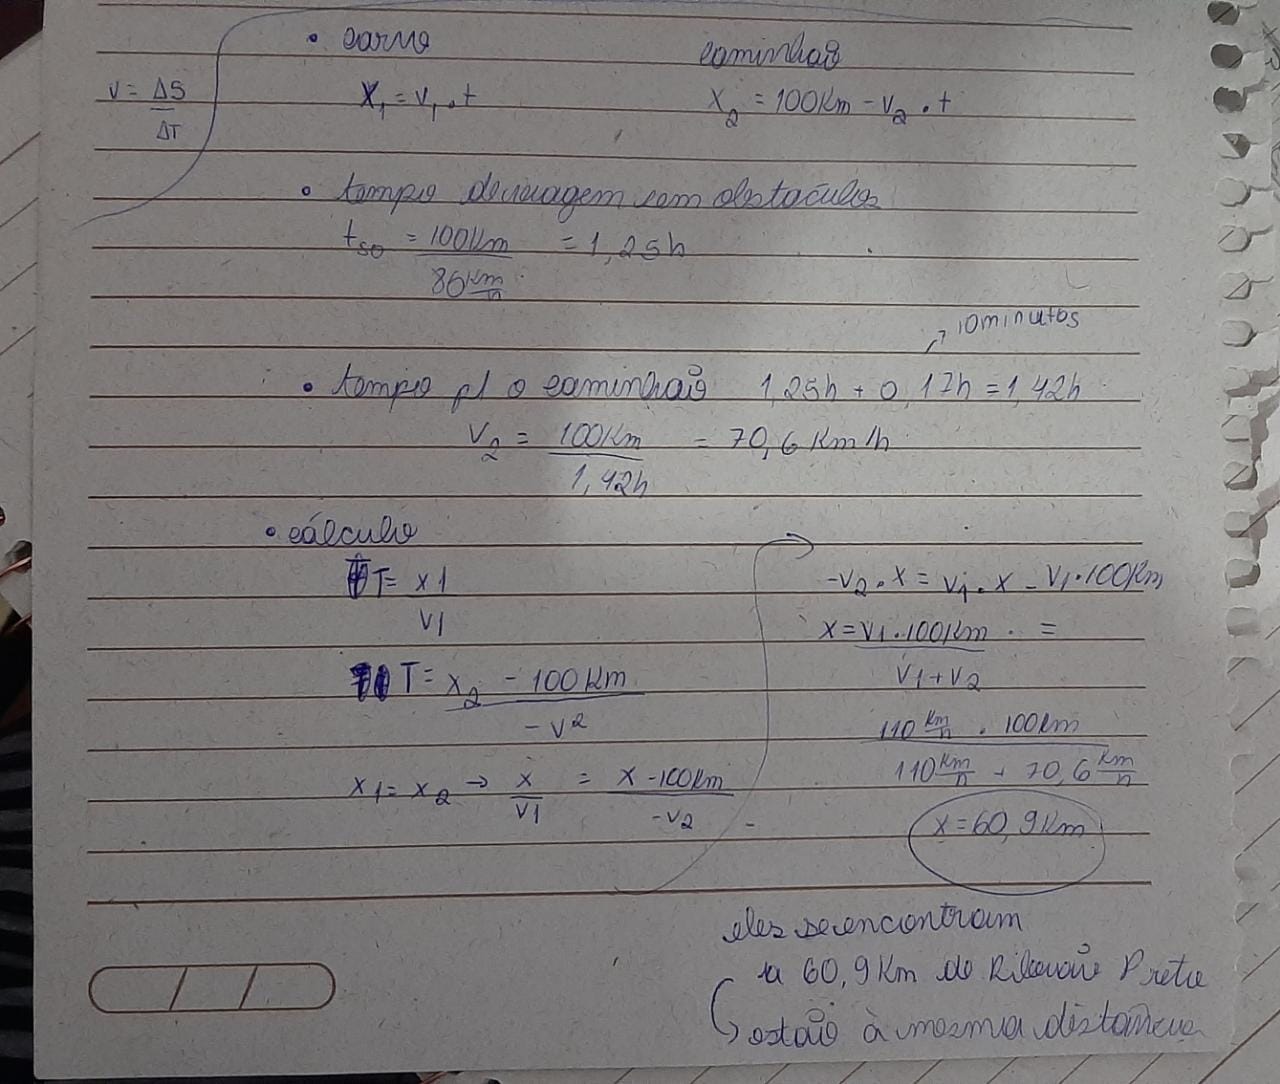 • carro caminhão
V = ΔS / ΔT X₁ = V₁ . t X₂ = 100Km - V₂ . t
• tempo de viagem sem obstáculos
t so = 100Km / 80 Km/h = 1,25h
10 minutos
• tempo p/ o caminhão 1,25h + 0,17h = 1,42h
V₂ = 100Km / 1,42h = 70,6 Km/h
• cálculo
T = x1 / V1
T = x₂ - 100 Km / - V²
x1 = x₂ → x / V1 = x - 100Km / - V₂
- V₂ . x = V1 . x - V1 . 100Km
x = V1 . 100Km / V1 + V₂ =
110 Km/h . 100Km / 110 Km/h + 70,6 Km/h
x = 60,9Km
eles se encontram
a 60,9 Km de Ribeirão Preto
estão à mesma distância